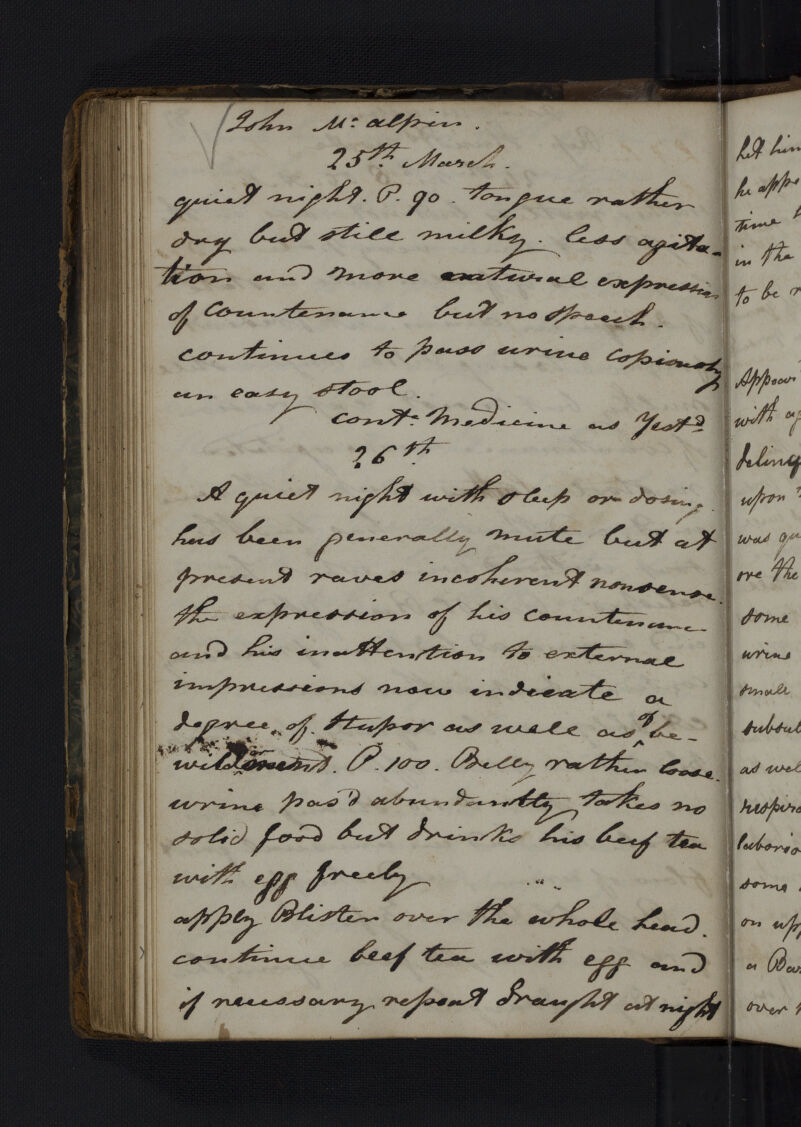 John Mc alpin.
25th March.
quiet night. P. 90. tongue rather
dry but still milky. less agita-
tion and more natural expression
of Countenance but no speech.
continues to pass urine Copiously
an easy stool.
cont: Medicine as Yestd
26th
A quiet night with sleep or dosing.
has been generally mute but at
present raves incoherent nonsense.
the expression of his Countenance
and his inattention to external
impressions now indicate a
degree of Stupor as well as of be-
wilderment. P. 100. Belly rather loose.
urine pas'd abundantly, takes no
solid food but drinks his beef tea
with egg freely
apply Blister over the whole head.
continue beef tea with egg and
if necessary repeat draught at night
he appe
time
in the
to be
Appears
with
upon
was
ore the
some
urine
small
as wel
some
on
a
over